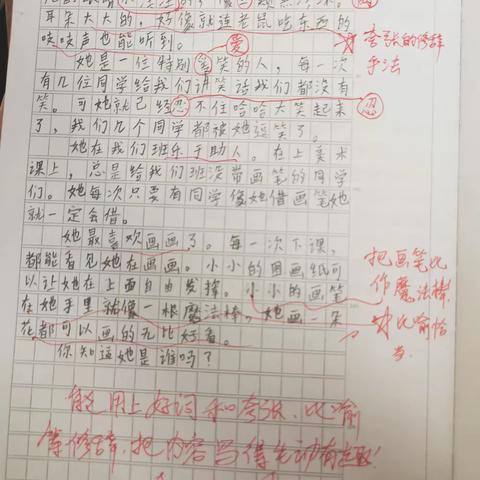 耳朵大大的，好像就连老鼠吃东西的
吱吱声也能听到。
爱
夸张的修辞
手法
她是一位特别爱笑的人，每一次
有几位同学给我们讲笑话我们都没有
笑。可她就已经忍不住哈哈大笑起来
忍
了，我们几个同学都被她逗笑了。
她在我们班乐于助人。在上美术
课上，总是给我们班没带画笔的同学
们。她每次只要有同学像她借画笔她
就一定会借。
她最喜欢画画了。每一次下课，
都能看见她在画画。小小的图画纸可
以让她在上面自由发挥。小小的画笔
在她手里就像一根魔法棒，她画一朵
花都可以画的无比好看。
把画笔比
作魔法棒，
比喻恰
当。
你知道她是谁吗？
能用上好词和夸张、比喻
等修辞，把内容写得生动有趣！